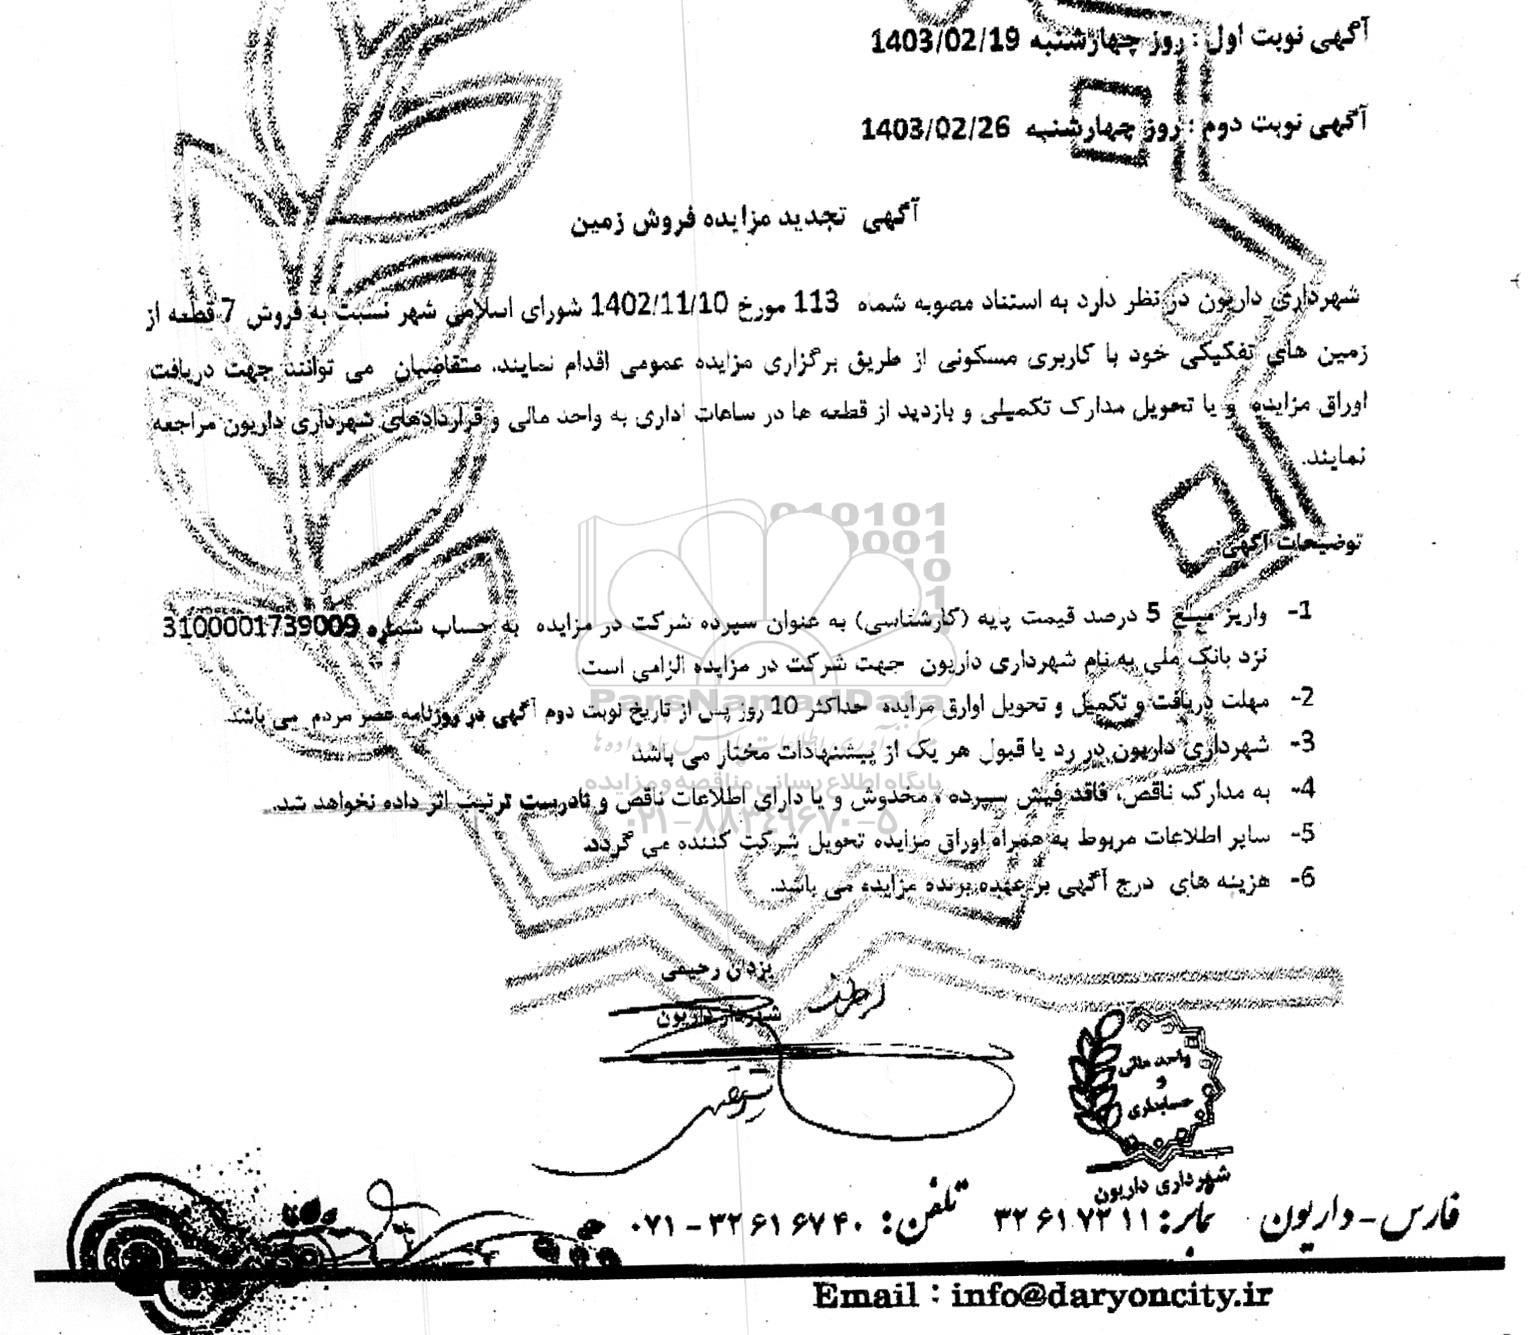 آگهی نوبت اول : روز چهارشنبه 1403/02/19
آگهی نوبت دوم : روز چهارشنبه 1403/02/26
آگهی تجدید مزایده فروش زمین
شهرداری داریون در نظر دارد به استناد مصوبه شماه 113 مورخ 1402/11/10 شورای اسلامی شهر نسبت به فروش 7 قطعه از
زمین های تفکیکی خود با کاربری مسکونی از طریق برگزاری مزایده عمومی اقدام نمایند. متقاضیان می توانند جهت دریافت
اوراق مزایده و یا تحویل مدارک تکمیلی و بازدید از قطعه ها در ساعات اداری به واحد مالی و قراردادهای شهرداری داریون مراجعه
نمایند.
توضیحات آگهی:
1- واریز مبلغ 5 درصد قیمت پایه (کارشناسی) به عنوان سپرده شرکت در مزایده به حساب شماره 3100001739009
نزد بانک ملی به نام شهرداری داریون جهت شرکت در مزایده الزامی است.
2- مهلت دریافت و تکمیل و تحویل اوارق مزایده حداکثر 10 روز پس از تاریخ نوبت دوم آگهی در روزنامه عصر مردم می باشد.
3- شهرداری داریون در رد یا قبول هر یک از پیشنهادات مختار می باشد
4- به مدارک ناقص، فاقد فیش سپرده ، مخدوش و یا دارای اطلاعات ناقص و نادرست ترتیب اثر داده نخواهد شد.
5- سایر اطلاعات مربوط به همراه اوراق مزایده تحویل شرکت کننده می گردد.
6- هزینه های درج آگهی بر عهده برنده مزایده می باشد.
یزدان رحیمی
شهردار داریون
واحد مالی
و
حسابداری
شهرداری داریون
فارس - داریون نمابر: ۳۲۶۱۷۲۱۱ تلفن: ۳۲۶۱۶۷۴۰ - ۰۷۱
Email : info@daryoncity.ir
ParsNamadData
پایگاه اطلاع رسانی مناقصه و مزایده
۰۲۱-۸۸۳۴۹۶۷۰-۵